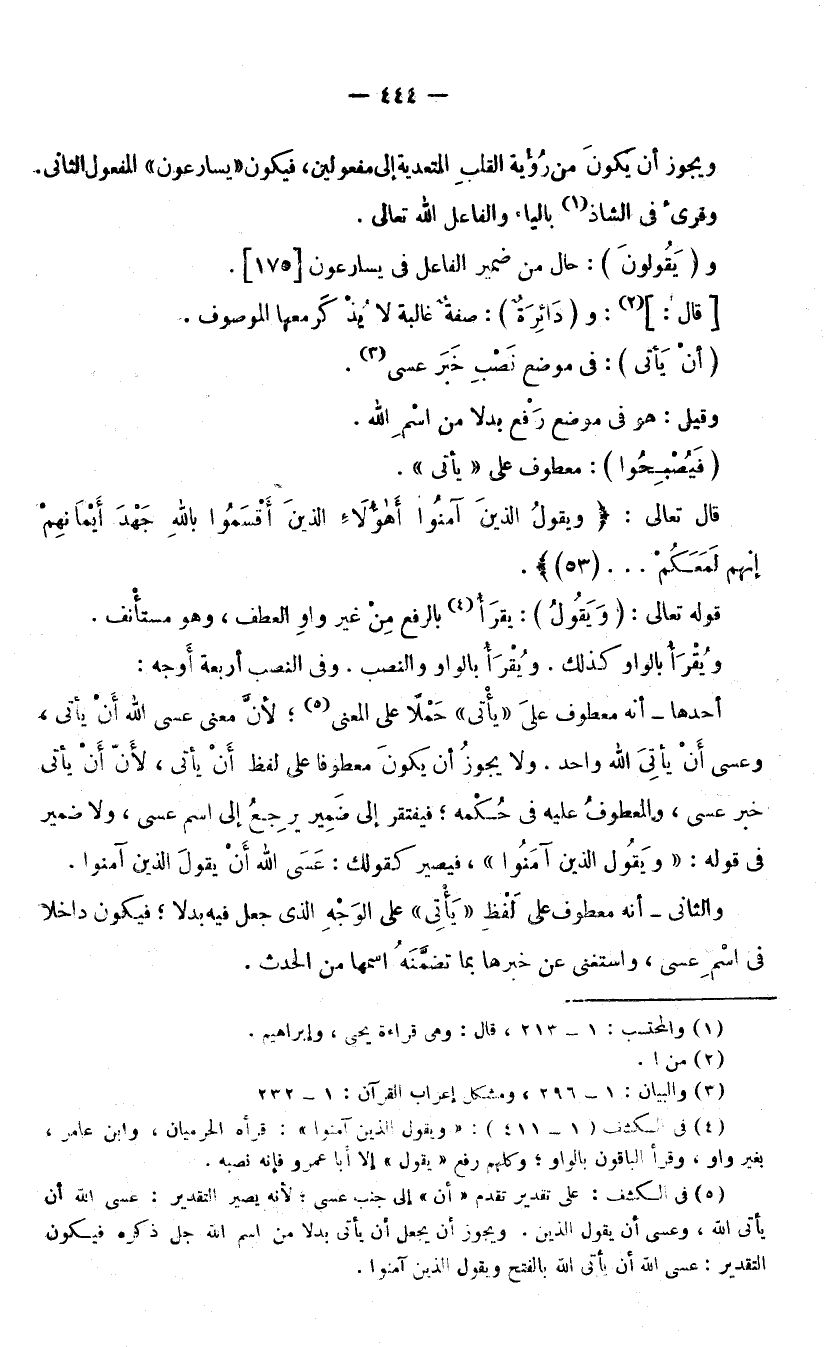 — ٤٤٤ —
ويجوز أن يَكُونَ من رُؤْية القلبِ المتعدية إلى مفعولين، فيكون «يسارعون» المفعول الثانى.
وقرىءَ فى الشاذ(١) بالياء والفاعل الله تعالى .
و ( يَقُولونَ ) : حال من ضمير الفاعل فى يسارعون [١٧٥] .
[ قال : ](٢) : و ( دَائِرَةٌ ) : صفةٌ غالبة لا يُذْكَر معها الموصوف .
( أنْ يَأتى ) : فى موضع نَصْبِ خَبَرَ عسى(٣) .
وقيلى : هو فى موضع رَفْع بدلا من اسْمِ الله .
( فَيُصْبِحُوا ) : معطوف على « يأتى » .
قال تعالى : ﴿ ويقولُ الذينَ آمنُوا أَهٰؤُلَاءِ الذينَ أَقْسَمُوا باللهِ جَهْدَ أَيْمَانهِمْ
إنهم لَمَعَكُمْ . . . (٥٣)﴾ .
قوله تعالى : ( وَيَقُولُ ) : يقرَأُ(٤) بالرفع مِنْ غير واوِ العطف ، وهو مستأْنف .
ويُقْرَأُ بالواو كذلك . ويُقْرَأُ بالواو والنصب . وفى النصب أربعة أَوجه :
أحدها ــ أنه معطوف علىَ «يأْتى» حَمْلًا على المعنى(٥) ؛ لأنَّ معنى عسى الله أَنْ يأتى ،
وعسى أَنْ يأتِىَ الله واحد . ولا يجوزُ أن يكونَ معطوفا على لفظ أَنْ يأتى ، لأَنّ أنْ يأتى
خبر عسى ، والمعطوفُ عليه فى حُكْمه ؛ فيفتقر إلى ضَمِير يرجعُ إلى اسم عسى ، ولا ضمير
فى قوله : « ويَقُول الذين آمَنُوا » ، فيصير كقولك : عَسَى الله أَنْ يقولَ الذين آمنوا .
والثانى ــ أنه معطوف على لَفْظِ «يَأْتِى» على الوَجْهِ الذى جعل فيه بدلا ؛ فيكون داخلا
فى اسْمِ عسى ، واستغنى عن خبرها بما تضمَّنَهُ اسمها من الحدث .
(١) والمحتسب : ١ ــ ٢١٣ ، قال : وهى قراءة يحيى ، وإبراهيم .
(٢) من ا .
(٣) والبيان : ١ ــ ٢٩٦ ، ومشكل إعراب القرآن : ١ ــ ٢٣٢
(٤) فى الكشف ( ١ ــ ٤١١ ) : « ويقول الذين آمنوا » : قرأه الحرميان ، وابن عامر ،
بغير واو ، وقرأ الباقون بالواو ؛ وكلهم رفع « يقول » إلا أبا عمرو فإنه نصبه .
(٥) فى الكشف : على تقدير تقدم « أن » إلى جنب عسى ؛ لأنه يصير التقدير : عسى الله أن
يأتى الله ، وعسى أن يقول الذين . ويجوز أن يجعل أن يأتى بدلا من اسم الله جل ذكره فيكون
التقدير : عسى الله أن يأتى الله بالفتح ويقول الذين آمنوا .